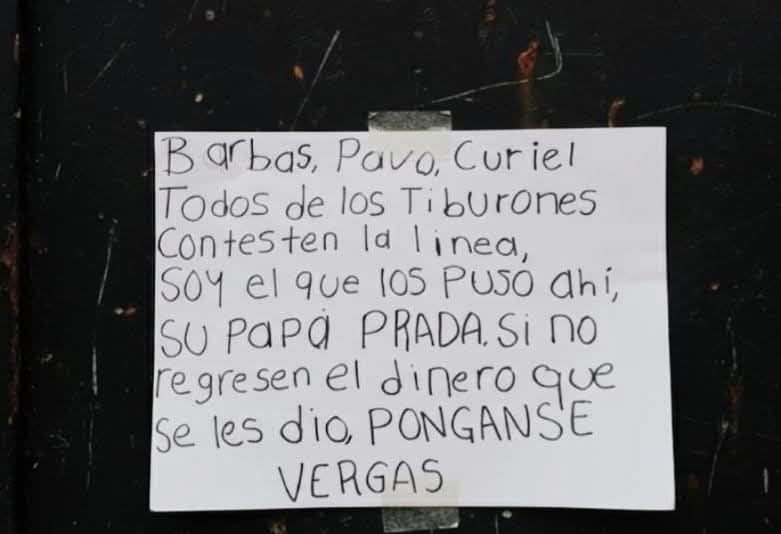 Barbas, Pavo, Curiel
Todos de los Tiburones
Contesten la linea,
SOY el que los PUSO ahí,
SU PAPÁ PRADA. Si no
regresen el dinero que
se les dio, PONGANSE
VERGAS